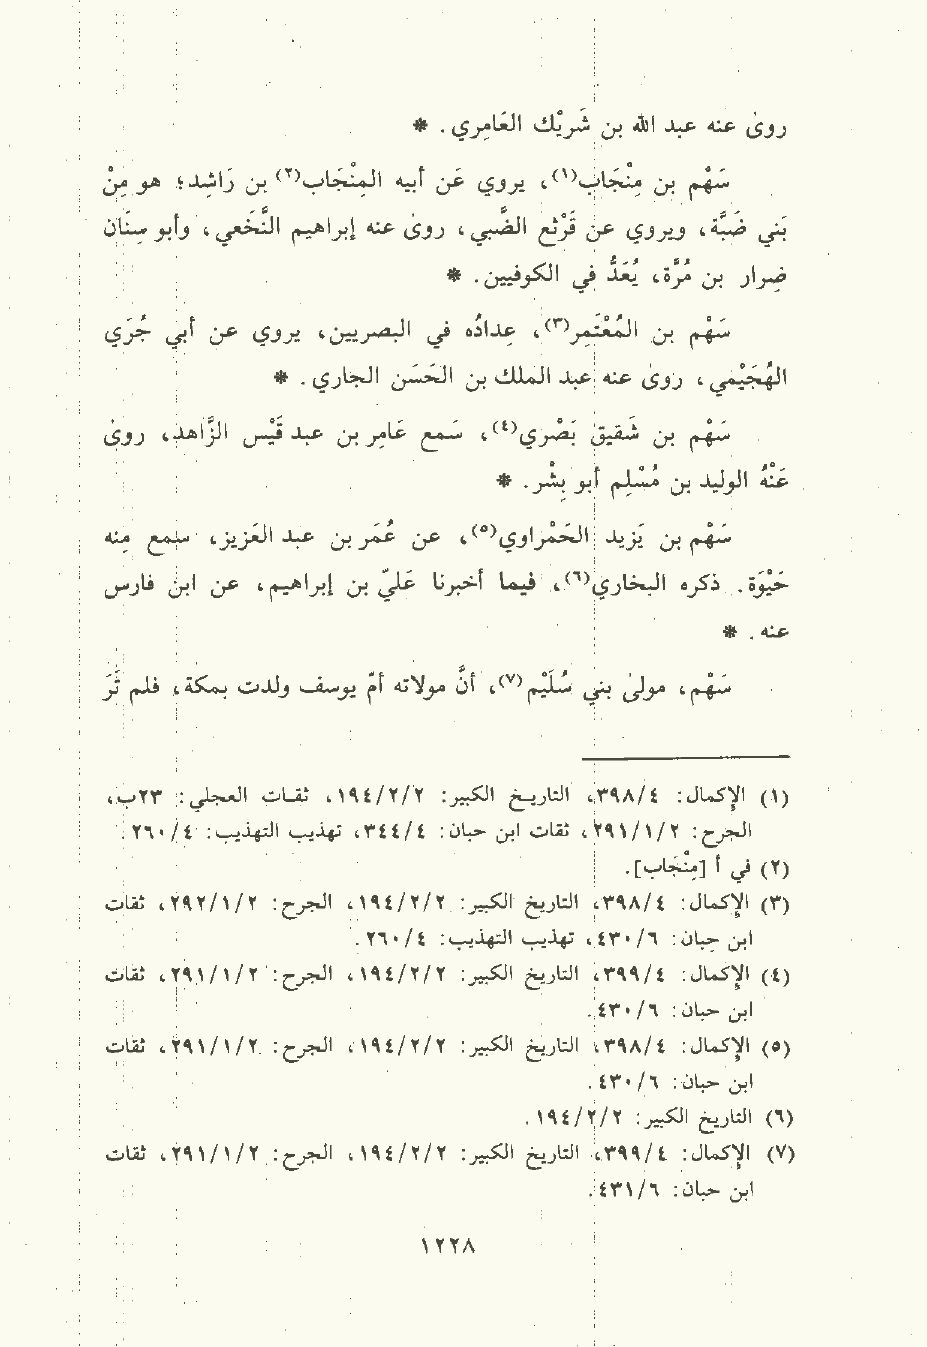 روىٰ عنه عبد الله بن شَرِيْك العَامِري. *
سَهْم بن مِنْجَاب(١)، يروي عَن أبيه المِنْجَاب(٢) بن رَاشِد؛ وهو مِنْ
بَني ضَبَّة، ويروي عن قَرْثع الضَّبي، روىٰ عنه إبراهيم النَّخَعي، وأبو سِنَان
ضِرار بن مُرَّة، يُعَدُّ في الكوفيين. *
سَهْم بن المُعْتَمِر(٣)، عِدادُه في البصريين، يروي عن أبي جُرَي
الهُجَيْمي، روىٰ عنه عبد الملك بن الحَسَن الجاري. *
سَهْم بن شَقيق بَصْري(٤)، سَمع عَامِر بن عبد قَيْس الزَّاهد، روىٰ
عَنْهُ الوليد بن مُسْلِم أبو بِشْر. *
سَهْم بن يَزيد الحَمْراوي(٥)، عن عُمَر بن عبد العَزيز، سمع مِنه
حَيْوَة. ذكره البخاري(٦)، فيما أخبرنا عَليّ بن إبراهيم، عن ابن فارس
عنه. *
سَهْم، مولىٰ بني سُلَيْم(٧)، أنَّ مولاته أمّ يوسف ولدت بمكة، فلم تَرَ
(١) الإكمال: ٣٩٨/٤، التاريخ الكبير: ١٩٤/٢/٢، ثقات العجلي: ٢٣ب،
الجرح: ٢٩١/١/٢، ثقات ابن حبان: ٣٤٤/٤، تهذيب التهذيب: ٢٦٠/٤.
(٢) في أ [مِنْجَاب].
(٣) الإكمال: ٣٩٨/٤، التاريخ الكبير: ١٩٤/٢/٢، الجرح: ٢٩٢/١/٢، ثقات
ابن حبان: ٤٣٠/٦، تهذيب التهذيب: ٢٦٠/٤.
(٤) الإكمال: ٣٩٩/٤، التاريخ الكبير: ١٩٤/٢/٢، الجرح: ٢٩١/١/٢، ثقات
ابن حبان: ٤٣٠/٦.
(٥) الإكمال: ٣٩٨/٤، التاريخ الكبير: ١٩٤/٢/٢، الجرح: ٢٩١/١/٢، ثقات
ابن حبان: ٤٣٠/٦.
(٦) التاريخ الكبير: ١٩٤/٢/٢.
(٧) الإكمال: ٣٩٩/٤، التاريخ الكبير: ١٩٤/٢/٢، الجرح: ٢٩١/١/٢، ثقات
ابن حبان: ٤٣١/٦.
١٢٢٨